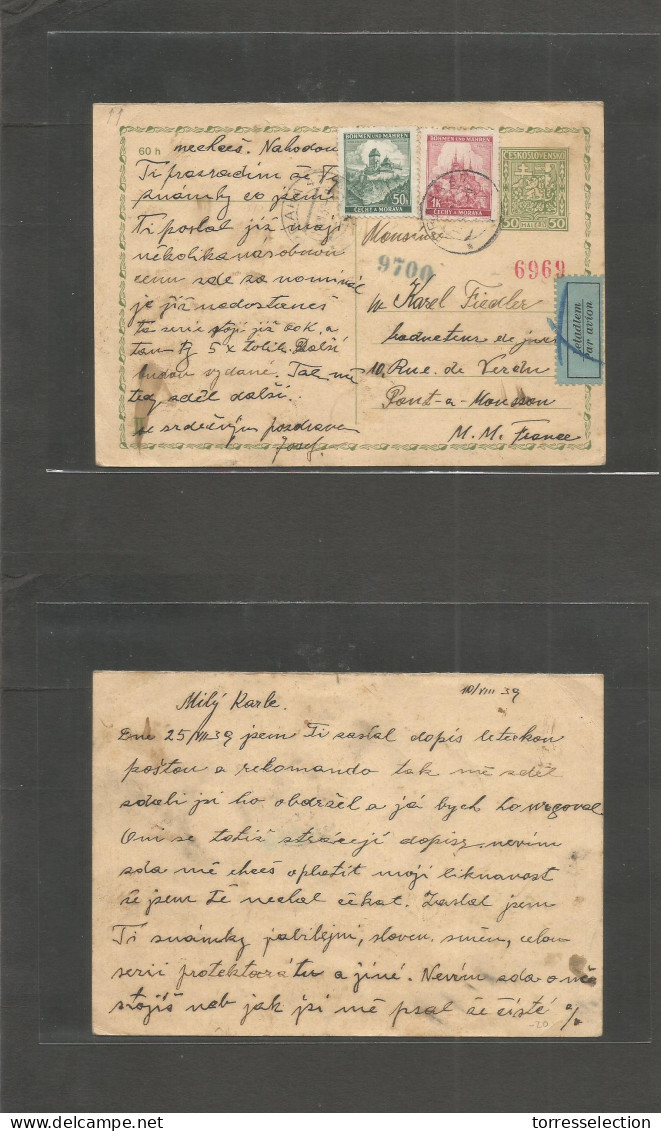 60 h
nechceš. Nahodou
Ti prozradím že Ty
známky co jsem
Ti poslal již mají
několikanásobnou
cenu zde za nominál
je již nedostaneš
ta serie stojí již 60K, a
tam 5 x tolik. Další
budou vydané. Tak mě
teď sděl další.
se srdečným pozdravem
Josef.
BÖHMEN UND MÄHREN
50h
ČECHY A MORAVA
BÖHMEN UND MÄHREN
1K
ČECHY A MORAVA
ČESKOSLOVENSKO
50 HALÉŘŮ 50
Monsieur
9700
6969
Letadlem
Par avion
Karel Fiedler
10. Rue. de Verdu
Pont-a-Mousson
M. M. France
10/VIII 39
Milý Karle.
Dne 25/VII 39 jsem Ti zaslal dopis leteckou
poštou a rekomando tak mě sděl
zdali jsi ho obdržel a já bych ho urgoval
Oni se totiž ztrácejí dopisy. nevím
zda mě chceš oplatit moji liknavost
že jsem Tě nechal čekat. Zaslal jsem
Ti známky jubilejní, sloven. sněm, celou
serii protektorátu a jiné. Nevím zda o ně
stojíš neb jak jsi mě psal že čisté
-20
torresselection